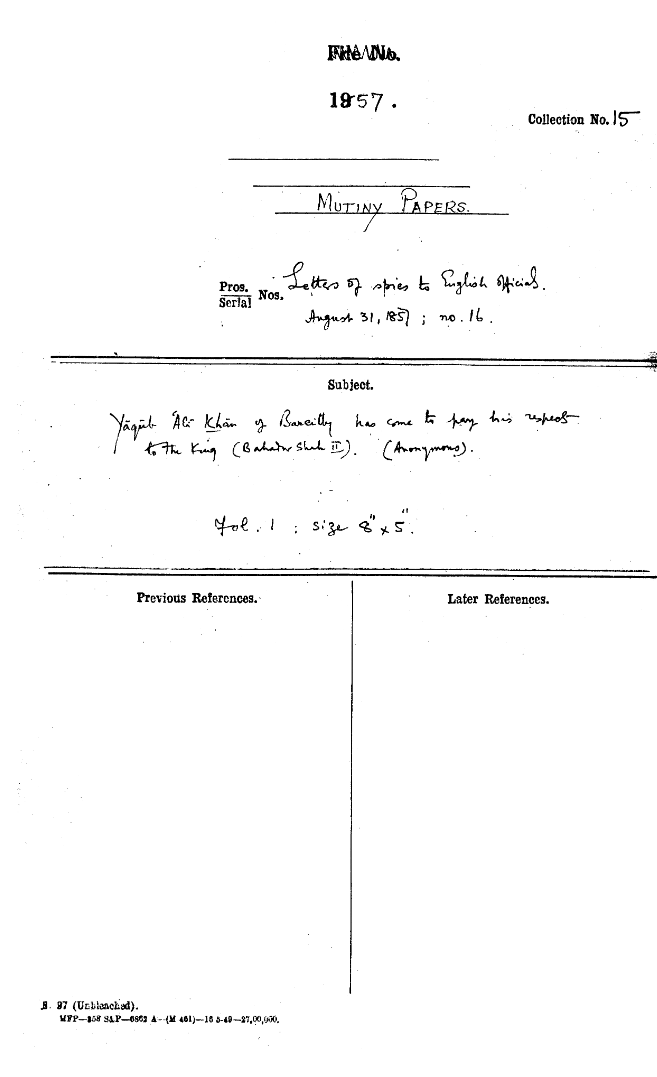 File No.
1957.
Collection No. 15
MUTINY PAPERS.
Pros. Nos. Letters of spies to English officials.
Serial
August 31, 1857 ; no. 16.
Subject.
Yāqūb 'Alī Khān of Bareilly has come to pay his respect
to the King (Bahadur Shah II). (Anonymous).
Fol. 1 ; size 8" x 5".
Previous References.
Later References.
S. 97 (Unbleached).
MFP—358 S&P—6862 A—(M 461)—16-5-49—27,00,000.